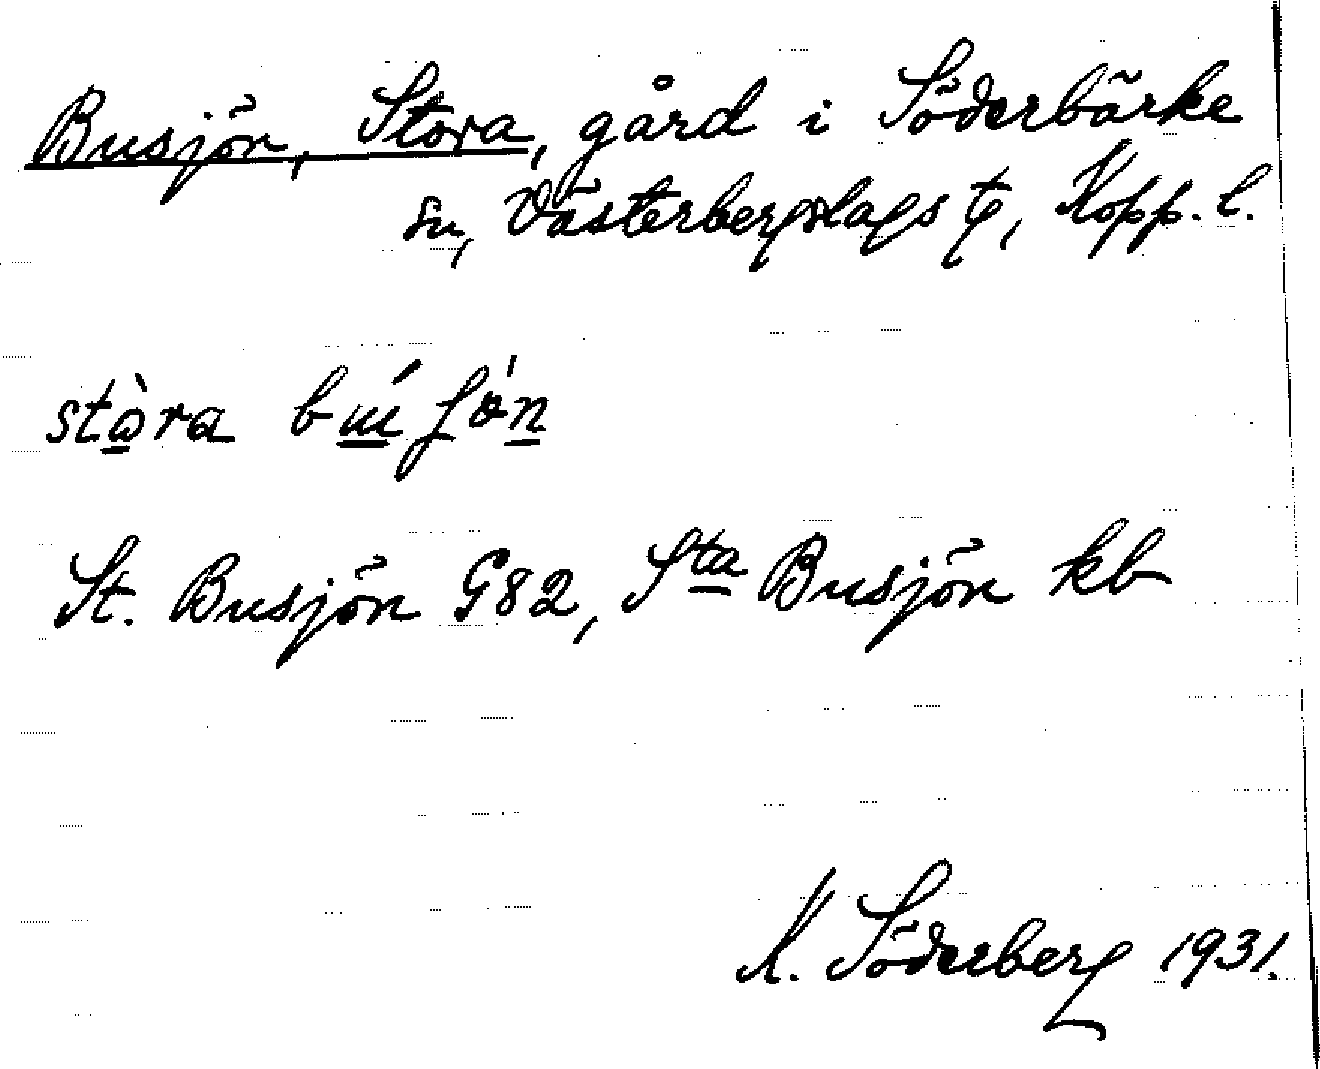 Busjön, Stora, gård i Söderbärke
sn, Västerbergslags tg, Kopp. l.
stòra búʃǿn
St. Busjön G82, Sta Busjön kb
K. Söderberg 1931.